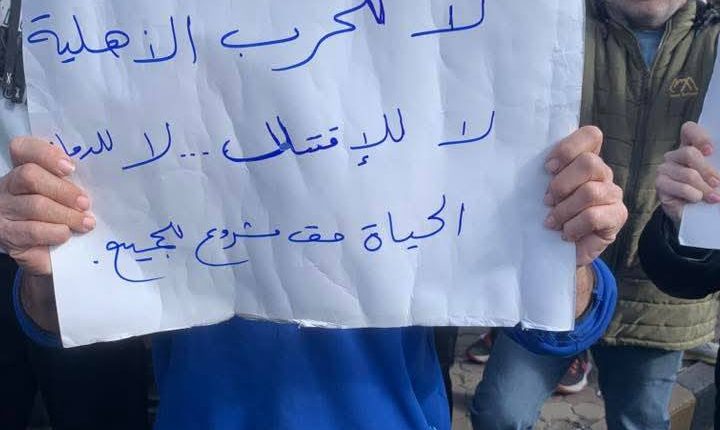 لا للحرب الأهلية
لا للإقتتال...لا للدمار
الحياة حق مشروع للجميع.